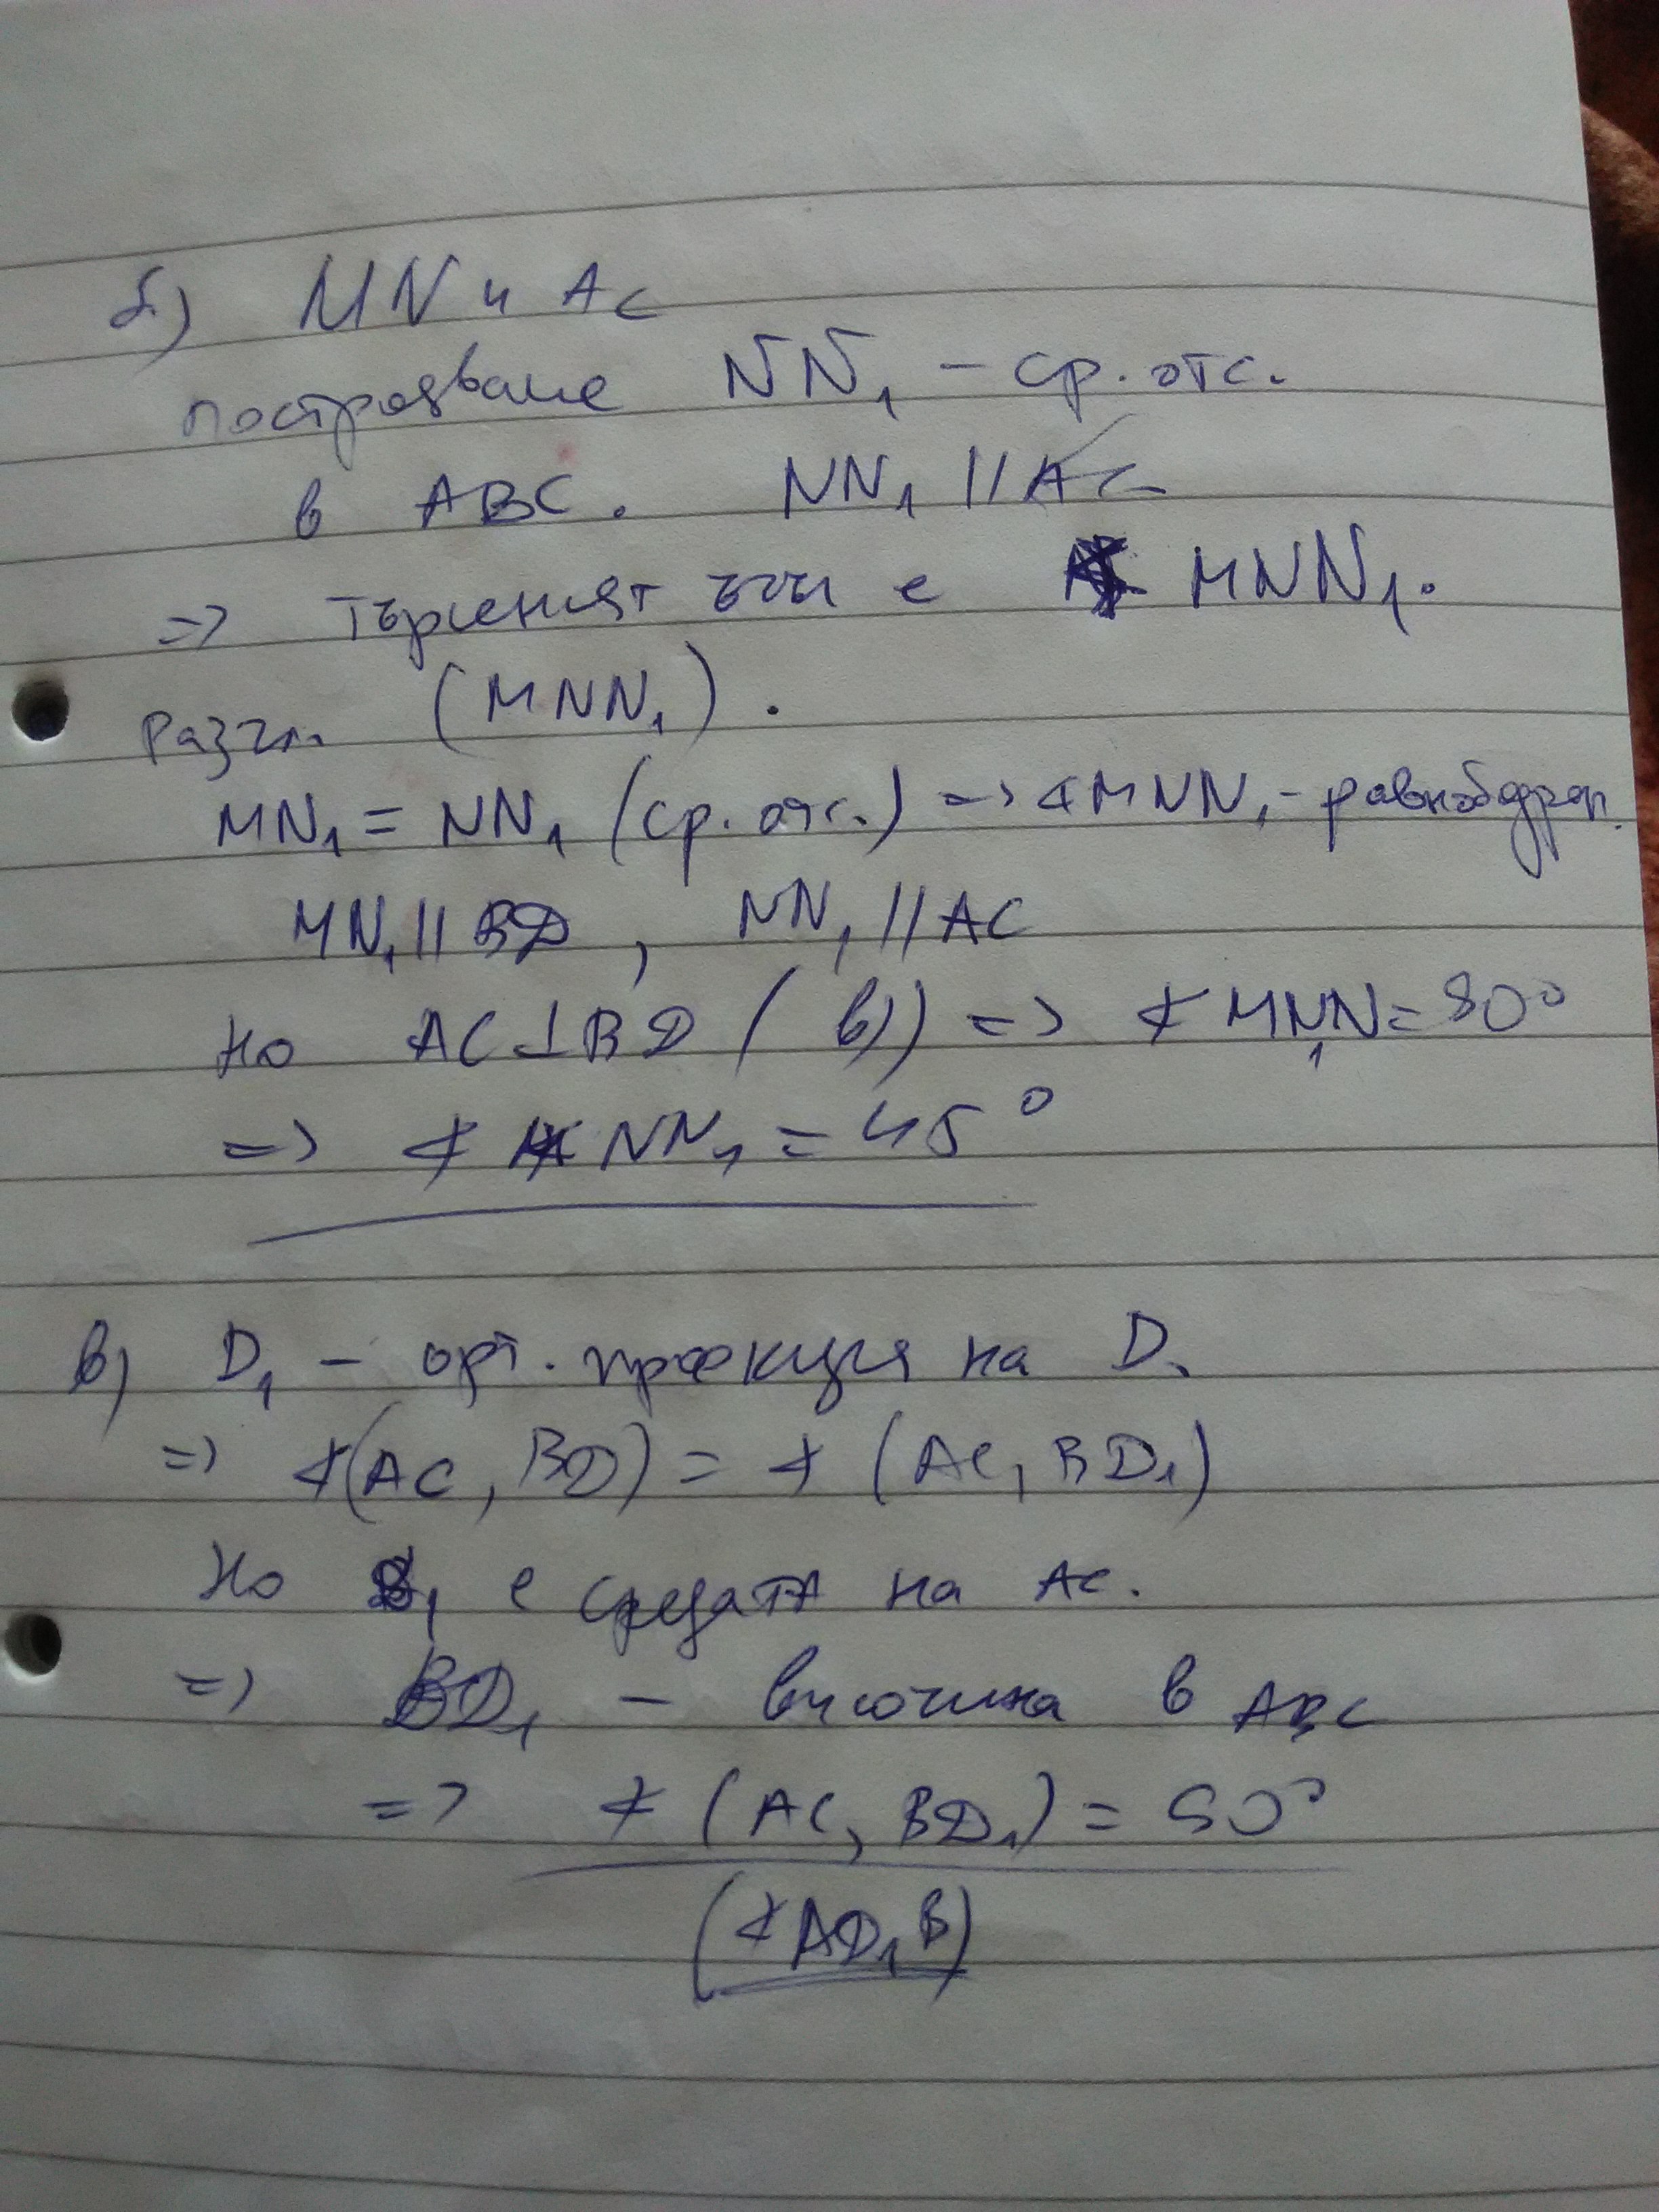 б) MN и AC
построяваме NN₁ – ср. отс.
в ABC. NN₁ || AC
=> търсеният ъгъл е ∢ MNN₁.
разгл. (MNN₁).
MN₁ = NN₁ (ср. отс.) => ∢MNN₁ - равнобедрен.
MN₁ || BD, NN₁ || AC
Но AC ⊥ BD ( в)) => ∢ MN₁N = 90°
=> ∢ MNN₁ = 45°
в) D₁ – орт. проекция на D.
=> ∢(AC, BD) = ∢ (AC, BD₁)
Но D₁ е средата на AC.
=> BD₁ – височина в ABC
=> ∢ (AC, BD₁) = 90°
(∢AD₁B)